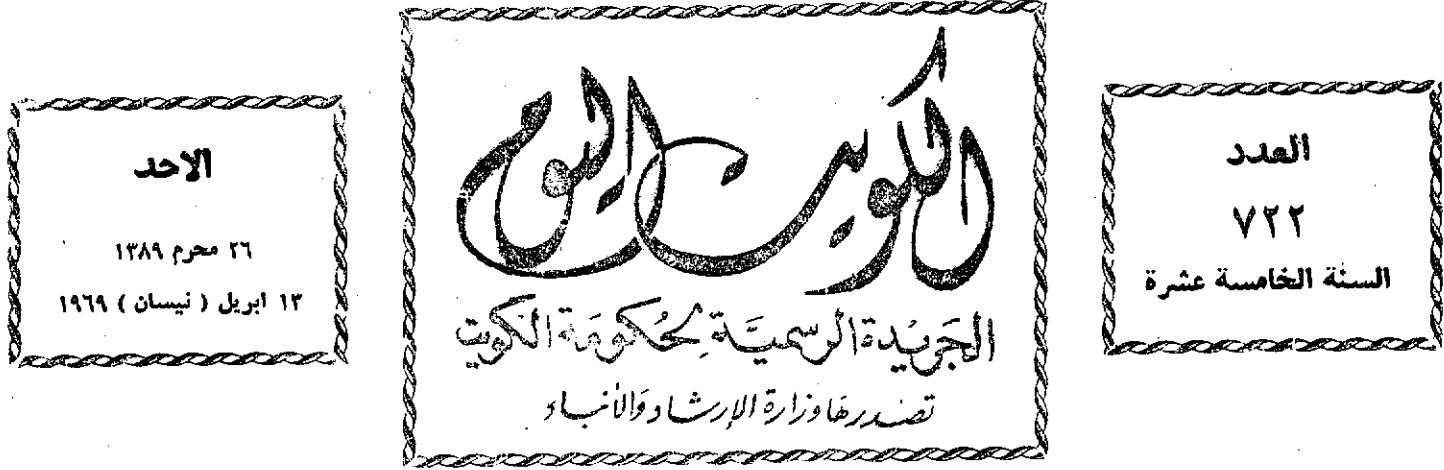 العدد
٧٢٢
السنة الخامسة عشرة
الكويت اليوم
الجَريْدة الرسميَّة لِحُكومَة الكويت
تصدرهَا وزارة الإرشاد وَالأنباء
الاحد
٢٦ محرم ١٣٨٩
١٣ ابريل ( نيسان ) ١٩٦٩